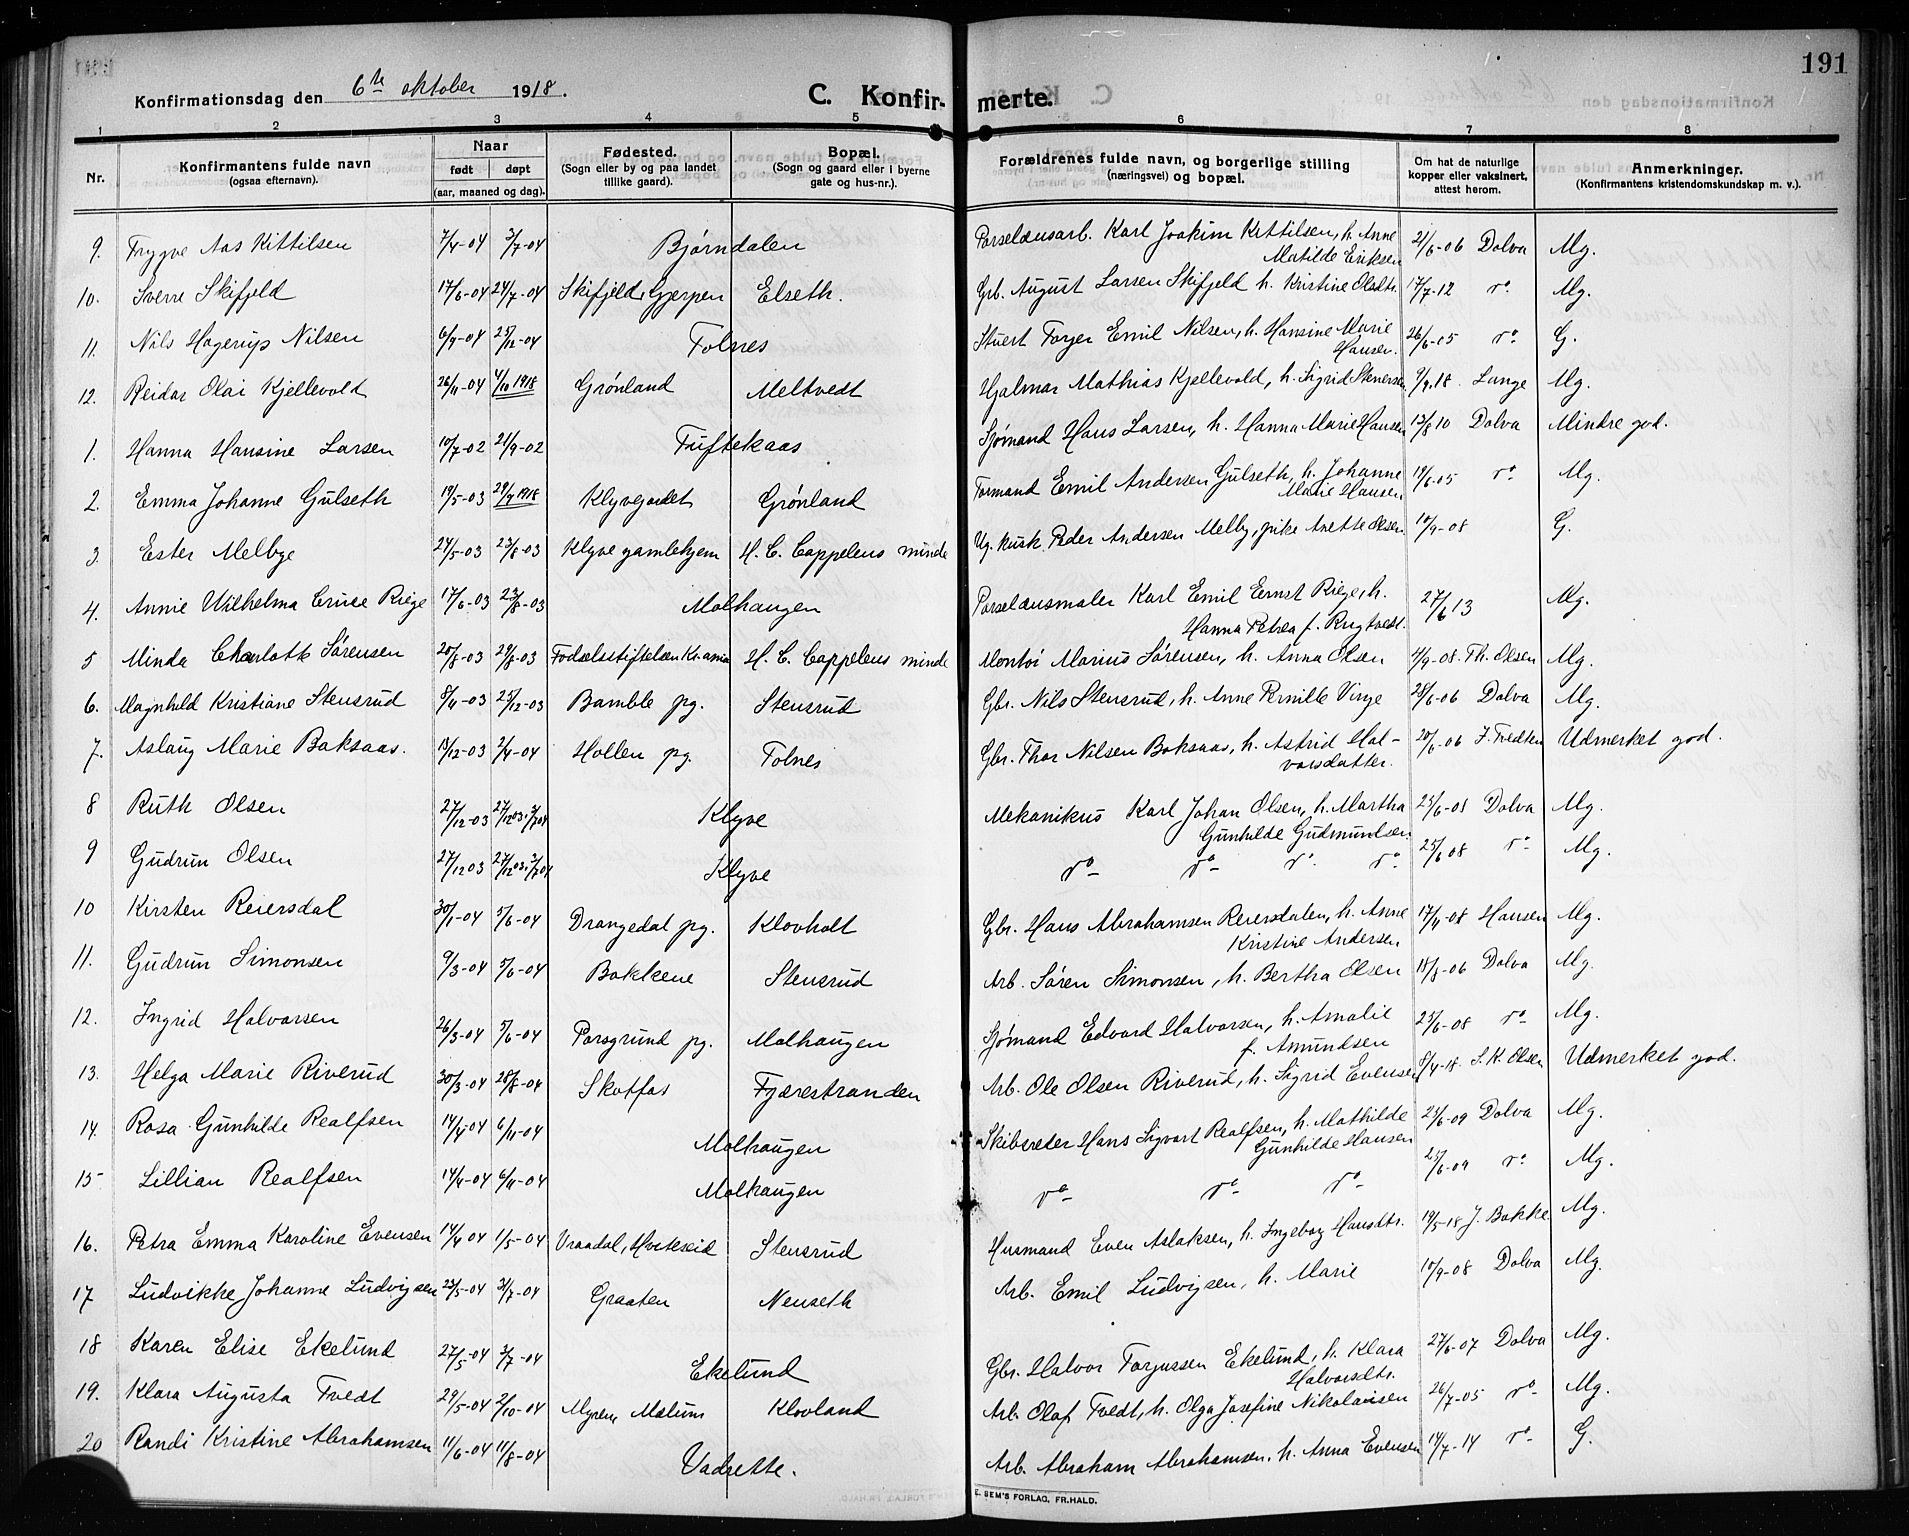 191
Konfirmationsdag den 6te oktober 1918.
C. Konfirmerte.
1 2 3 4 5 6 7 8
Nr.
Konfirmantens fulde navn
(ogsaa efternavn).
Naar
født døpt
(aar, maaned og dag).
Fødested.
(Sogn eller by og paa landet
tillike gaard).
Bopæl.
(Sogn og gaard eller i byerne
gate og hus-nr.).
Forældrenes fulde navn, og borgerlige stilling
(næringsvei) og bopæl.
Om hat de naturlige
kopper eller vaksinert,
attest herom.
Anmerkninger.
(Konfirmantens kristendomskundskap m. v.).
9. Trygve Aas Kittilsen 7/4-04 3/7-04 Bjørndalen Porselænsarb. Karl Joakim Kittilsen, h. Anne 21/6-06 Dolva Mg.
Matilde Eriksen
10. Sverre Skifjeld 17/6-04 24/7-04 Skifjeld, Gjerpen Elseth. Grb. August Larsen Skifjeld h. Kristine Olsdtr. 17/7-12 ro Mg.
11. Nils Hagerup Nilsen 6/9-04 25/12-04 Tolnes Stuert Torger Emil Nilsen, h. Hansine Marie 26/6-05 ro G.
Hansen.
12. Reidar Olai Kjellevold 26/11-04 4/10 1918 Grønland Meltvedt Hjalmar Mathias Kjellevold, h. Sigrid Sknersen 9/9.18. Lange Mg.
1. Hanna Hansine Larsen 10/7-02 21/9-02 Tuftekaas Sjømand Hans Larsen, h. Hanna Marie Hansen 13/8 10 Dolva Mindre god.
2. Emma Johanne Gulseth 19/5-03 29/9 1918 Klyvejordet Grønland Formand Emil Andersen Gulseth, h. Johanne 19/6-05 ro Mg.
Marie Hansen
3. Ester Melbye 24/5-03 23/8-03 Klyve gamlehjem H. C. Cappelens minde Ug. kusk Peder Andersen Melby, pike Anette Olsen 10/9-08 G.
4. Annie Wilhelma Cruse Riege 17/6-03 23/8-03 Molhaugen Porselænsmaler Karl Emil Ernst Riege, h. 27/6 13 Mg.
Hanna Petrea f. Rugtvedt.
5 Minda Charlotte Sørensen 20/8-03 29/8-03 Fødselsstiftelsen Kr.ania H. C. Cappelens minde Montør Marius Sørensen, h. Anna Olsen 4/9-08. Th. Olsen Mg.
6. Magnhild Kristiane Stensrud 8/11-03 25/12-03 Bamble pg. Stensrud Gbr. Nils Stensrud, h. Anne Pernille Vinge 28/6-06 Dolva Mg.
7. Aslaug Marie Baksaas. 13/12-03 2/4-04 Hollen pg. Tolnes Gbr. Thor Nilsen Baksaas, h. Astrid Hal- 20/6-06 J. Tvedten Udmerket god.
vorsdatter.
8 Ruth Olsen 27/12-03 27/12 03, 3/7 04 Klyve Mekanikus Karl Johan Olsen, h. Martha 25/6-08 Dolva Mg.
Gunhilde Gudmundsen
9 Gudrun Olsen 27/12 03 27/12 03, 3/7 04 Klyve ro ro ro ro 25/6 08 ro Mg.
10 Kirsten Reiersdal 30/1-04 5/6-04 Drangedal pg. Klovholt Gbr. Hans Abrahamsen Reiersdalen, h. Anne 17/4-08 Hansen Mg.
Kristine Andersen
11. Gudrun Simonsen 9/3-04 5/6-04 Bakkene Stensrud Arb. Søren Simonsen, h. Bertha Olsen 18/8-06 Dolva Mg.
12. Ingrid Halvorsen 26/3-04 5/6-04 Porsgrund pg. Molhaugen Sjømand Edvard Halvorsen, h. Amalie 25/6-08 ro Mg.
f. Amundsen
13. Helga Marie Riverud 30/3-04 28/8-04 Skotfos Fjærestranden Arb. Ole Olsen Riverud, h. Sigrid Evensen 8/4-18. S. K. Olsen Udmerket god.
14. Rosa Gunhilde Realfsen 14/4-04 6/11-04 Molhaugen Skibsreder Hans Sigvart Realfsen, h. Mathilde 25/6-09 Dolva Mg.
Gunhilde Hansen
15 Lillian Realfsen 14/4-04 6/11-04 Molhaugen ro ro ro 25/6-09 ro Mg.
16. Petra Emma Karoline Evensen 14/4 04 1/5-04 Vraadal, Hvitseid Stensrud Husmand Even Aslaksen, h. Ingeborg Hansdtr. 19/5-18 J. Bakke Mg.
17 Ludvikke Johanne Ludvigsen 23/5-04 3/7-04 Graaten Nenseth Arb. Emil Ludvigsen, h. Marie 10/9-08 Dolva Mg.
18 Karen Elise Ekelund 27/5-04 3/7-04 Ekelund Gbr. Halvor Torjussen Ekelund, h. Klara 27/6-07 Dolva Mg.
Halvorsdtr.
19. Klara Augusta Tvedt 29/5-04 2/10-04 Myren, Mælum Klovland Arb. Olaf Tvedt, h. Olga Josefine Nikolaisen 26/7-05 ro Mg.
20 Randi Kristine Abrahamsen 11/6-04 11/8-04 Vadrette. Arb. Abraham Abrahamsen, h. Anna Evensen 14/7-14 ro G.
E. SEM'S FORLAG, FR.HALD.